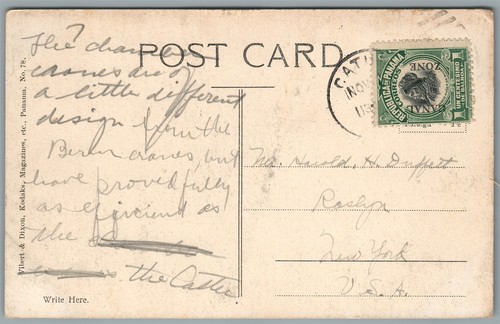 POST CARD
The chamber
cranes are of
a little different
design from the
cranes, but
have proved fully
as efficient as
the
the
Write Here.
Vibert & Dixon, Kodaks, Magazines, etc., Panama, No. 78.
CATU
NOV
REPUBLICA DE PANAMA
CORREOS
CANAL
ZONE
1
Mr. Harold, H. Duffett
Roslyn
New York
U.S.A.